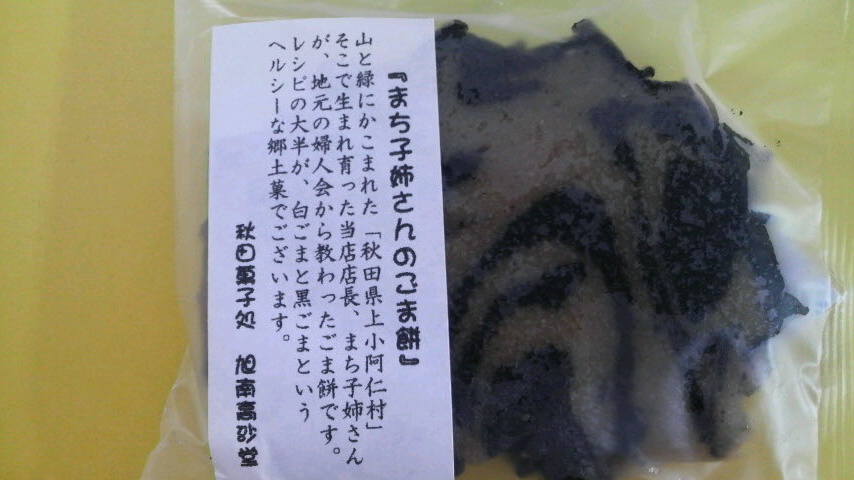 『まち子姉さんのごま餅』
山と緑にかこまれた「秋田県上小阿仁村」
そこで生まれ育った当店店長、まち子姉さん
が、地元の婦人会から教わったごま餅です。
レシピの大半が、白ごまと黒ごまという
ヘルシーな郷土菓でございます。
秋田菓子処 旭南高砂堂